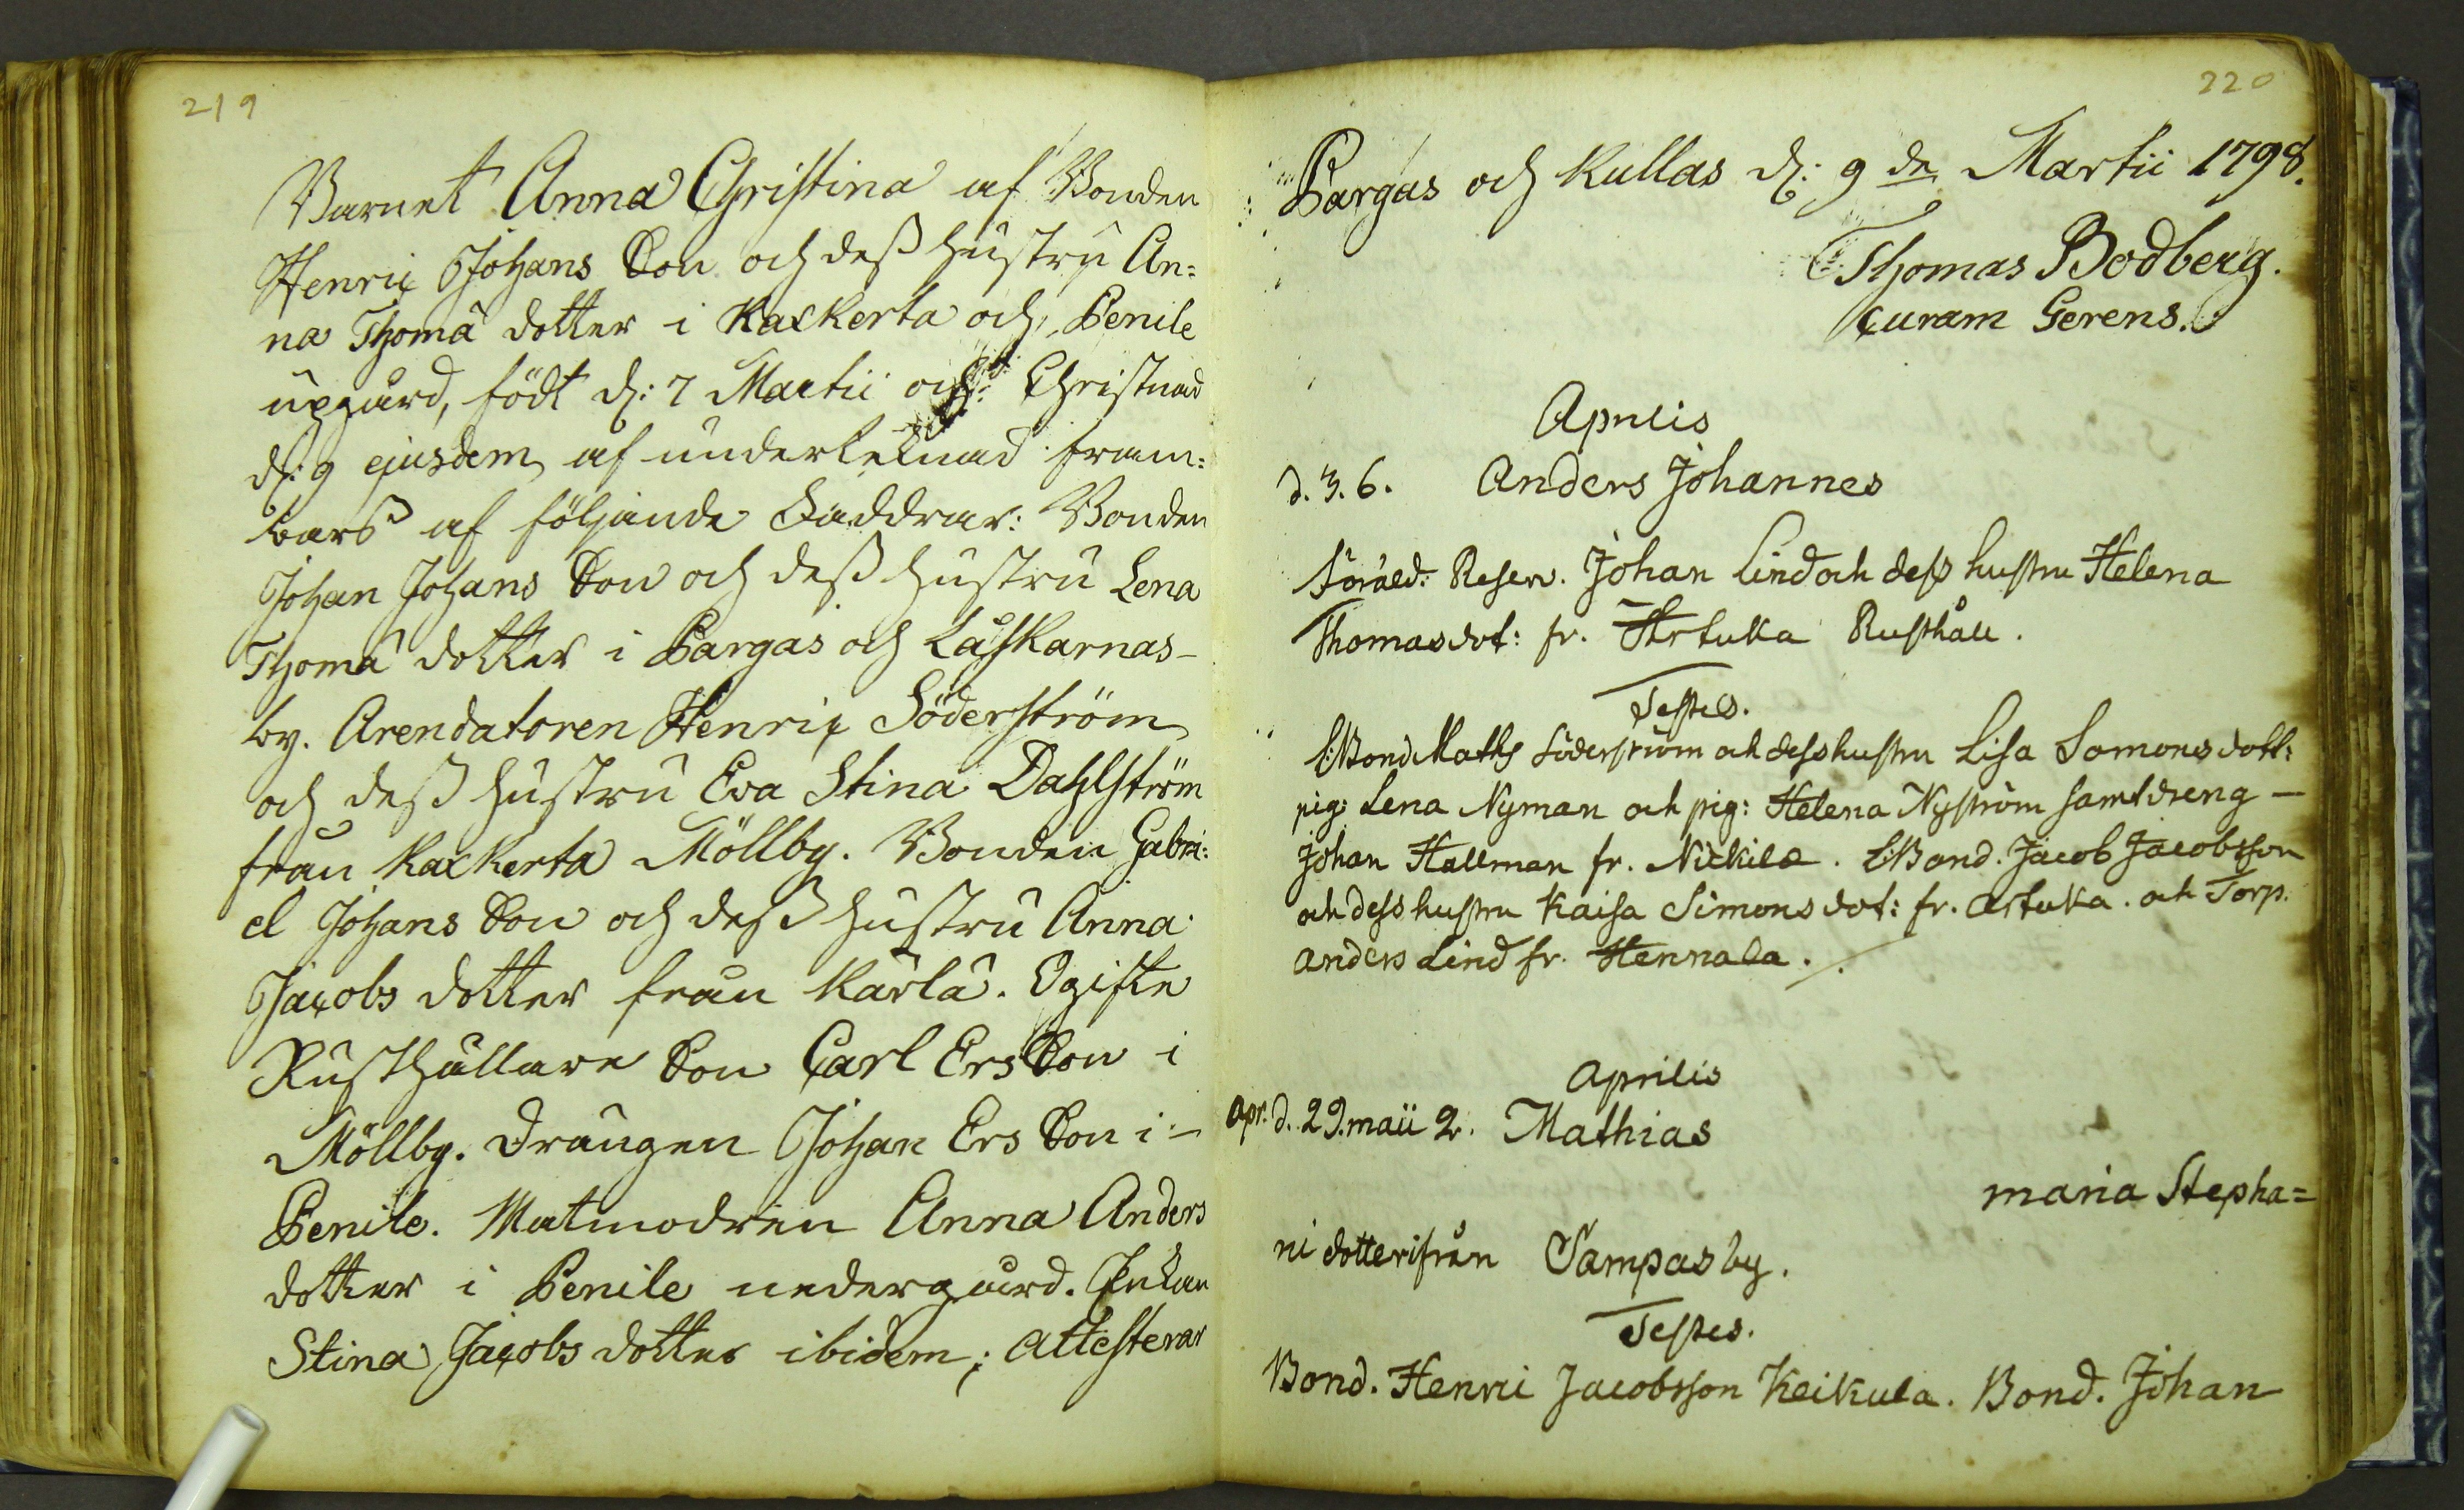 219
Barnet Anna Christina af Bonden
Henric Johans Son och deß hustru An=
na Thomä dotter i Kaxkerta och Benile
uppgård, född d: 7 Martii och Christnad
d: 9 ejusdem af underteknad fram=
bars af följande Faddrar: Bonden
Johan Johans Son och deß hustru Lena
Thomä dotter i Pargas och Laskarnas-
by. Arendatoren Henric Söderström
och deß hustru Eva Stina Dahlström
från Kaxkerta Möllby. Bonden Gabri=
el Johans Son och deß hustru Anna
Jacobs dotter från Kärlä. Ogifte
Rusthållare Son Carl Ers Son i
Möllby. Drängen Johan Ers Son i -
Benile. Matmodren Anna Anders
dotter i Benile nedergård. Enkan
Stina Jacobs dotter ibidem; attesterar
220
Pargas och Kullas d: 9 de Martii 1798.
Thomas Bodberg.
Curam Gerens.
Aprilis
d. 3. 6. Anders Johannes
Föräld: Reserv. Johan Lind och dess hustru Helena
Thomasdot: fr. Artuka Rusthåll.
Testes.
Bond Maths Söderström och dess hustru Lisa Somons dott:
pig: Lena Nyman och pig: Helena Nyström samt dreng -
Johan Hallman fr. Nickilä. Bond. Jacob Jacobsson
och dess hustru Kaisa Simons dot: fr. Artuka. och Torp.
Anders Lind fr. Hennala.
Aprilis
Apr. d. 29. maii 2. Mathias
maria Stepha=
ni dotter ifrån Sampas by.
Testes.
Bond. Henric Jacobsson Keikula. Bond. Johan